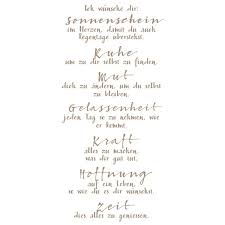 Ich wünsche dir:
Sonnenschein
im Herzen, damit du auch
Regentage überstehst.
Ruhe
um zu dir selbst zu finden.
Mut
dich zu ändern, um du selbst
zu bleiben.
Gelassenheit
jeden Tag so zu nehmen, wie
er kommt.
Kraft
alles zu machen,
was dir gut tut.
Hoffnung
auf ein Leben,
so wie du es dir wünschst.
Zeit
dies alles zu geniessen.